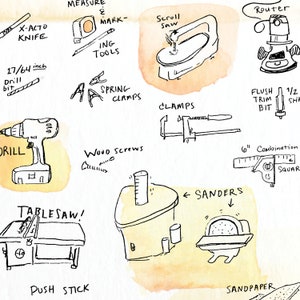 MEASURE
& MARK-
ING
TOOLS
X-ACTO
KNIFE
SCROLL
SAW
ROUTER
17/64 inch
DRILL
bit
SPRING
CLAMPS
CLAMPS
FLUSH
TRIM
BIT
DRILL
WOOD SCREWS
6" Combination
SQUAR
← SANDERS
TABLESAW!
PUSH STICK
SANDPAPER